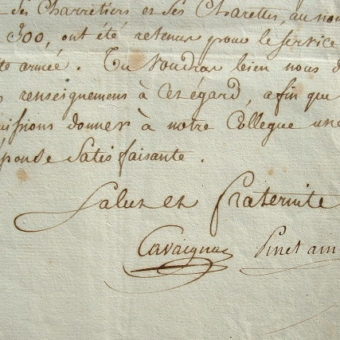 des Charretiers et Ses Charettes, au nom
300, ont été retenus pour le Service
te armée. Tu voudras bien nous d
renseignemens à cet egard, afin que
uissions donner à notre Collegue une
éponse Satisfaisante.
Salut et fraternité
Cavaignac Pinet aîn